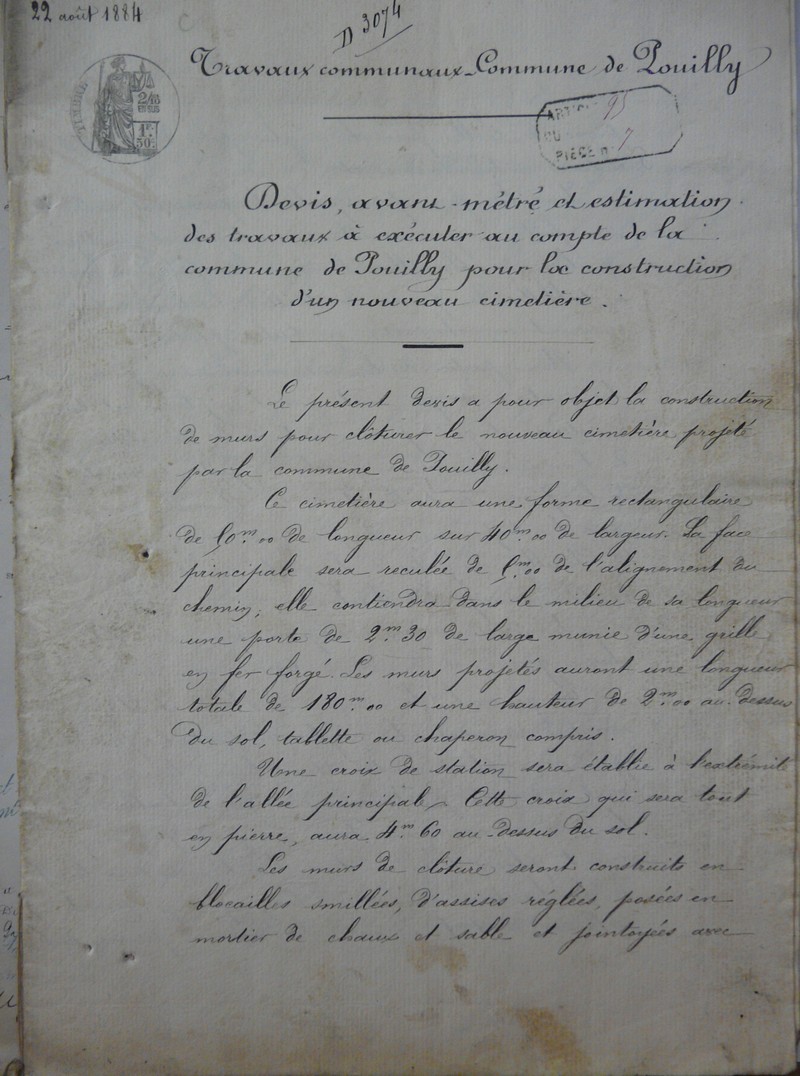 22 août 1884
D 3074
Travaux communaux _ Commune de Pouilly
2/10
EN SUS
1F.
50c
95
PIECE n° 7
Devis, avant-métré et estimation
des travaux à exécuter au compte de la
commune de Pouilly pour la construction
d'un nouveau cimetière.
Le présent devis a pour objet la construction
de murs pour clôturer le nouveau cimetière projeté
par la commune de Pouilly.
Ce cimetière aura une forme rectangulaire
de 50m,00 de longueur sur 40m,00 de largeur. La face
principale sera reculée de 5m,00 de l'alignement du
chemin; elle contiendra dans le milieu de sa longueur
une porte de 2m,30 de large munie d'une grille
en fer forgé. Les murs projetés auront une longueur
totale de 180m,00 et une hauteur de 2m,00 au-dessus
du sol, tablette ou chaperon compris.
Une croix de station sera établie à l'extrémité
de l'allée principale. Cette croix qui sera tout
en pierre, aura 4m,60 au-dessus du sol.
Les murs de clôture seront construits en
blocailles smillées, d'assises réglées, posées en
mortier de chaux et sable et jointoyées avec